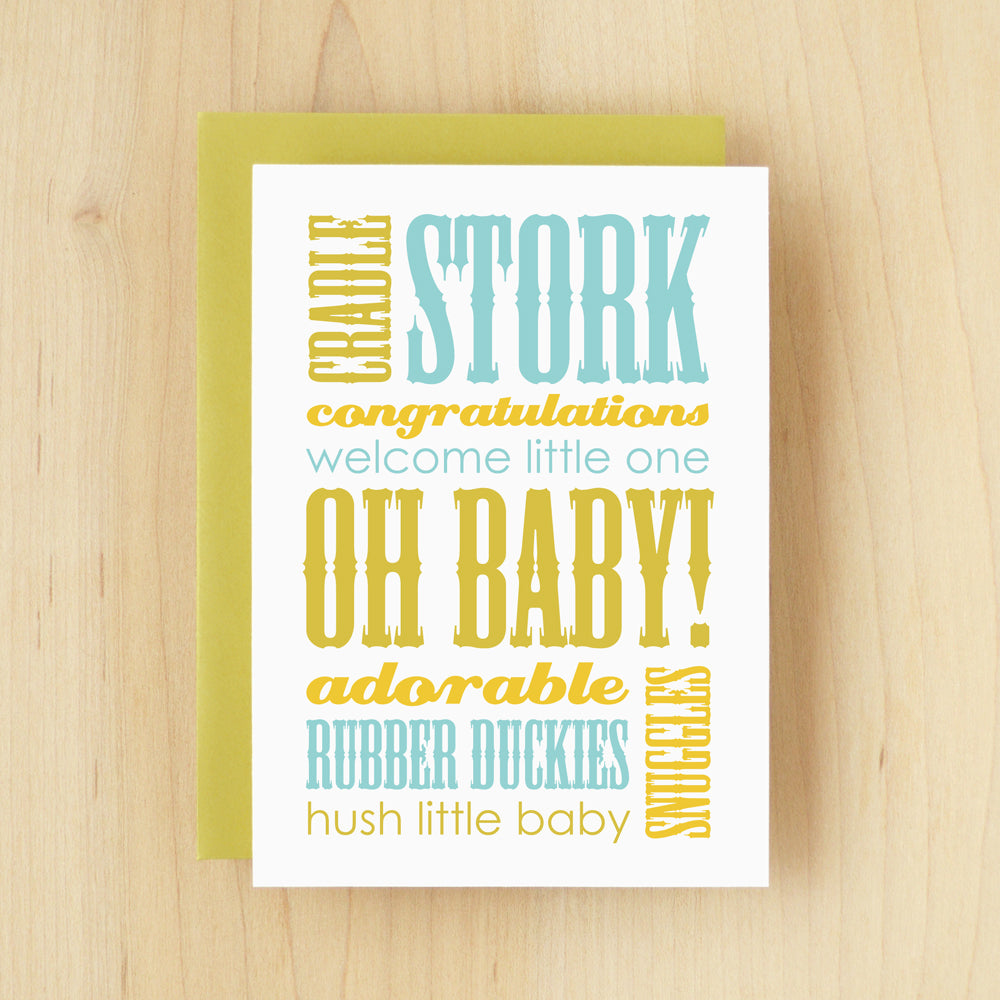 CRADLE
STORK
congratulations
welcome little one
OH BABY!
adorable
RUBBER DUCKIES
hush little baby
SNUGGLES